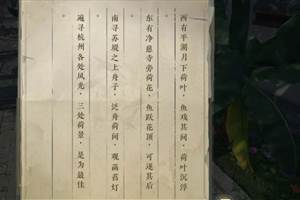 西有平湖月下荷叶，鱼戏其间，荷叶沉浮
东有净慈寺旁荷花，鱼跃花顶，可逐其后
南寻苏堤之上舟子，泛舟荷间，观高莒灯
遍寻杭州各处风光，三处荷景，是为最佳